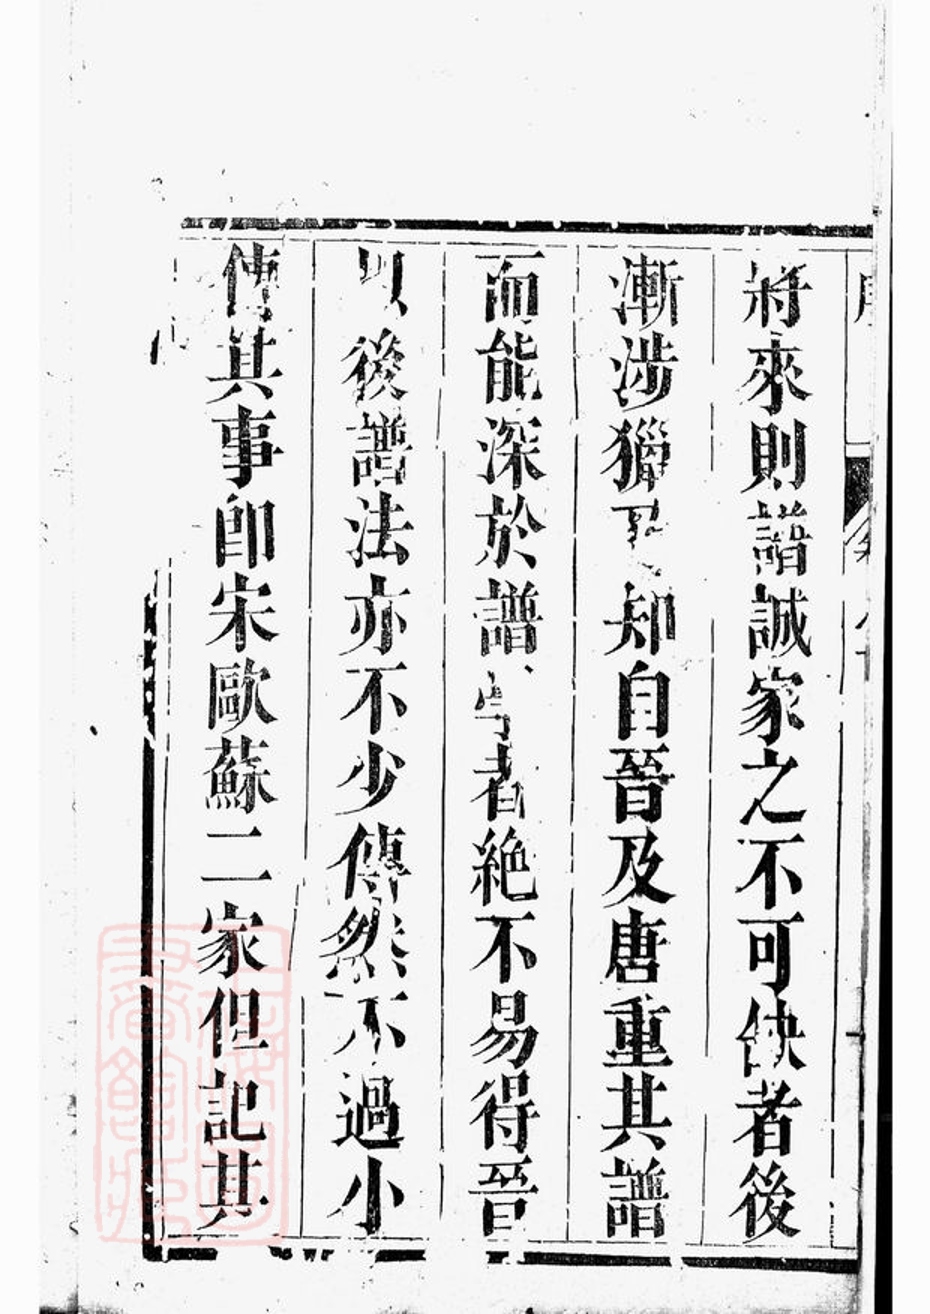 將來則譜誠家之不可缺者後
漸涉獵乃知自晉及唐重其譜
而能深於譜學者絶不易得晉
以後譜法亦不少傳然不過小
傳其事即宋歐蘇二家但記其